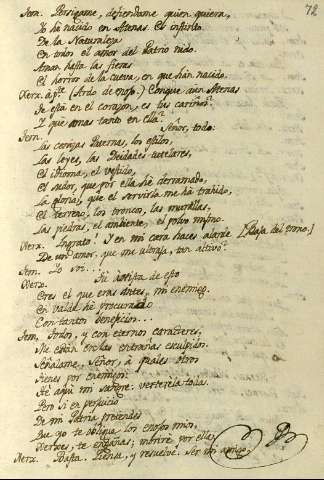 72
Tem. Persigame, defiendame quien quiera,
Yo hè nacido en Atenas. Es instinto
De la Naturaleza
En todos el amor del Patrio nido.
Aman hasta las fieras
El horror de la cueva, en que hàn nacido.
Xerx. àpte (Ardo de enojo.) Conque aun Atenas
Te està en el corazon, es tu cariño?
Y què amas tanto en ella?
Tem. Señor, todo:
Las cenizas Paternas, los estilos,
Las leyes, las Deidades tutelares,
El idioma, el vestido,
El sudor, que por ella hè derramado,
La gloria, que el servirla me hà trahido,
El terreno, los troncos, las murallas,
Las piedras, el ambiente, el polvo mismo.
Xerx. Ingrato! Y en mi cara haces alarde [Baja del trono.]
De un amor, que me ultraja, tan activo?
Tem. Yo soi...
Xerx. Tù à despecho de esto
Eres el que eras antes, mi enemigo.
En valde hè procurado
Con tantos beneficios...
Tem. Todos, y con eternos caractères,
Me estàn en las entrañas esculpidos.
Señalame, Señor, à quales otros
Tienes por enemigos:
Hè aqui mi sangre: verterela toda.
Pero si en perjuicio
De mi Patria pretendes
Que yo te obligue los enojos mios,
Xerxes, te engañas; morirè por ella.
Xerx. Basta. Piensa, y resuelve. Ser mi amigo,